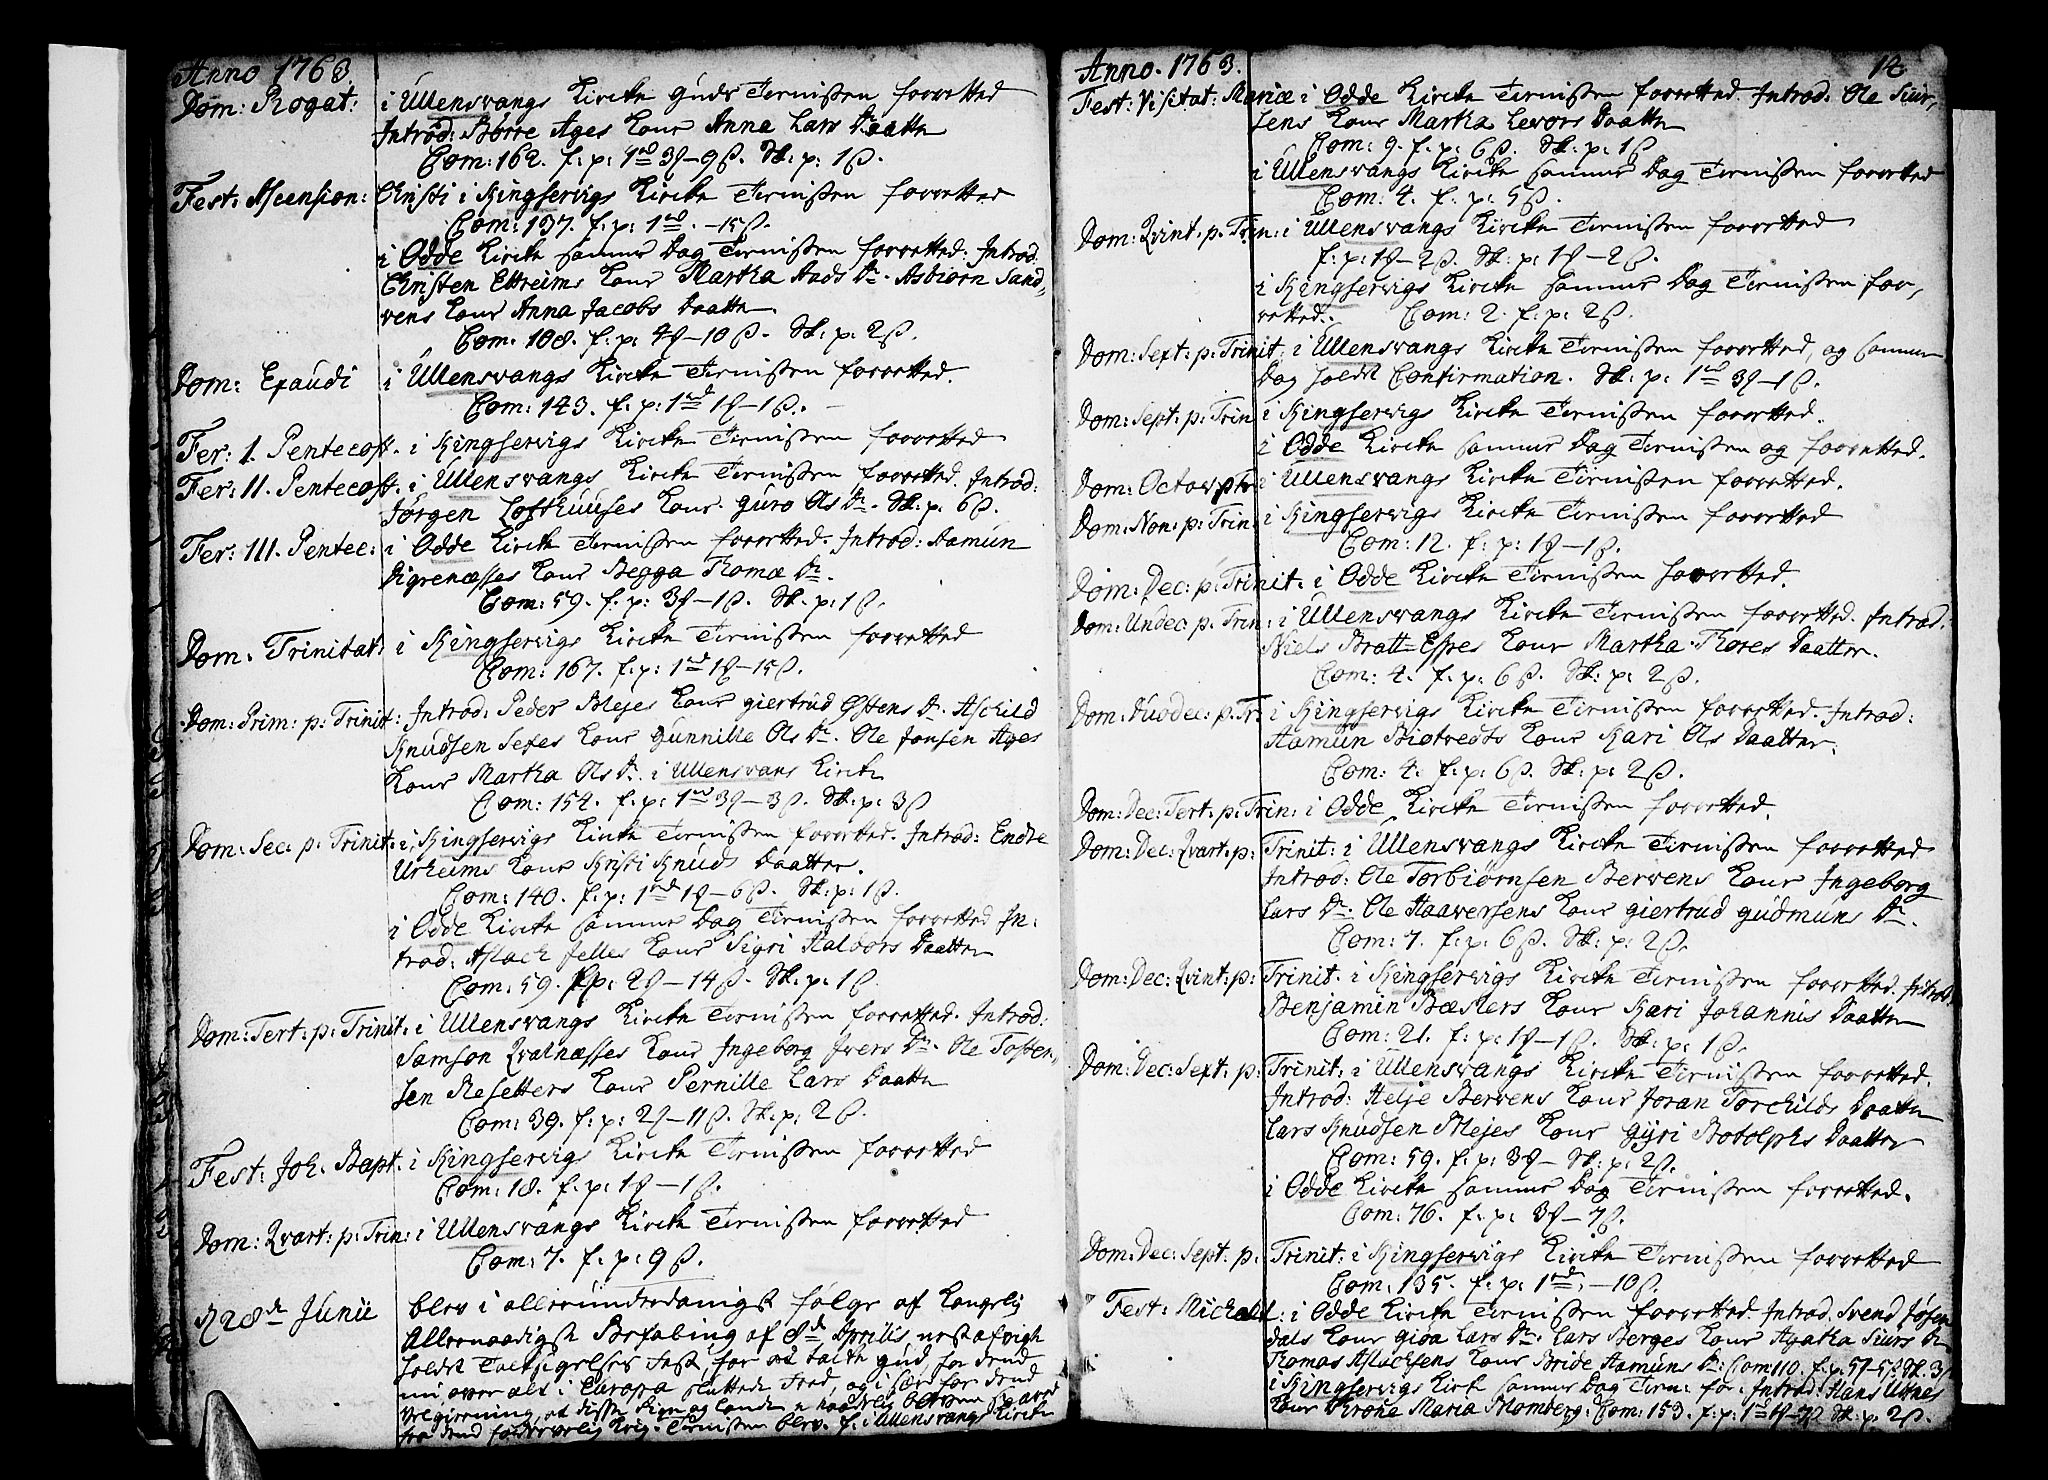 Anno 1763.
Dom: Rogat: i Ullensvangs Kircke Guds Tienisten forretted
Introd: Børre Ages Kone Anna Lars Daatter
Com: 162. f: p: 1rd 3 ₰ – 9 ß. Sk: p: 1 ß.
Fest: Ascension: Christi i Kingservigs Kircke Tienisten forretted
Com: 137. f: p: 1rd. – 15 ß.
i Odde Kircke samme Dag Tienisten forretted: Introd:
Christen Eitreims Kone Martha Aads Dr. Asbiørn Sand,,
vens Kone Anna Jacobs Daatter.
Com. 108. f: p: 4 ₰ – 10 ß. Sk: p: 2 ß.
Dom: Exaudi i Ullensvangs Kircke Tienisten forretted.
Com: 143. f: p: 1rd 1 ₰ – 1 ß.
Fer: I. Pentecost. i Kingservigs Kircke Tienisten forretted
Fer: II. Pentecost. i Ullensvangs Kircke Tienisten forretted. Introd:
Jørgen Lofthuuses Kone Guro Ols Dr. Sk: p: 6 ß.
Fer: III. Pentec: i Odde Kircke Tienisten forretted. Introd: Aamun
Digrenæsses Kone Begga Thomæ Dr.
Com: 59. f: p: 3 ₰ – 1 ß. Sk. p: 1 ß.
Dom. Trinitat: i Kingservigs Kircke Tienisten forretted
Com: 167. f: p: 1rd 1 ₰ – 15 ß.
Dom: Prim: p: Trinit: Introd: Peder Mejes Kone Giertrud Østens Dr. Aschild
Knudsen Sexes Kone Gunnille Ols Dr. Ole Jonsen Ages
Kone Martha Ols Dr. i Ullensvans Kircke
Com: 154. f: p: 1rd 3 ₰ – 3 ß. Sk: p: 3 ß
Dom: Sec: p: Trinit: i Kingservigs Kircke Tienisten forretted. Introd: Endre
Urheims Kone Kristi Knuds Daatter.
Com: 140. f: p: 1rd 1 ₰ – 6 ß. Sk: p: 1 ß.
i Odde Kircke samme Dag Tienisten forretted In:
trod: Aslach Jelles Kone Sigri Haldors Daatter
Com: 59. f p: 2 ₰ – 14 ß. Sk: p: 1 ß.
Dom: Tert: p: Trinit: i Ullensvangs Kircke Tienisten forretted. Introd:
Samson Qvalnæsses Kone Ingeborg Ivers Dr. Ole Tosten,,
sen Resetters Kone Pernille Lars Daatter
Com: 39. f: p: 2 ₰ – 11 ß. Sk: p: 2 ß.
Fest: Joh: Bapt: i Kingservigs Kircke Tienisten forretted
Com: 18. f: p: 1 ₰ – 1 ß.
Dom: Qvart: p: Trin: i Ullensvangs Kircke Tienisten forretted
Com: 7. f: p: 9 ß.
D 28de Junii blev i allerunderdanigst følge af Kongelig
Allernaadigste Befaling af 8de Aprilis nest afvigte
holdt Tacksigelses Fest, for at takke Gud, for dend
nu over alt i Europa sluttede Fred, og i sær for dend
Velgierning, at disse Riger og Lande er naadelig bleven sparet
fra dend fordervelig Krig. Tienisten blev f. i Ullensvangs Kircke
Anno. 1763. 12
Fest: Visitat: Mariæ i Odde Kircke Tienisten forretted. Introd. Ole Siur,,
sens Kone Martha Levors Daatter
Com: 9. f: p: 6 ß. Sk: p: 1 ß
i Ullensvangs Kircke samme Dag Tienisten forretted
Com: 4. f: p: 5 ß.
Dom: Qvint. p. Trin: i Ullensvangs Kircke Tienisten forretted
f: p: 1 ₰ – 2 ß. Sk: p: 1 ₰ – 2 ß.
i Kingservigs Kircke samme Dag Tienisten for,,
retted. Com: 2. f: p: 2 ß.
Dom: Sext: p: Trinit: i Ullensvangs Kircke Tienisten forretted, og samme
Dag holdt Confirmation. Sk: p: 1rd 3 ₰ – 1 ß.
Dom: Sept: p: Trin i Kingservigs Kircke Tienisten forretted.
i Odde Kircke samme Dag Tienisten og forretted.
Dom: Octav p Tr i Ullensvangs Kircke Tienisten forretted.
Dom: Non: p: Trin: i Kingservigs Kircke Tienisten forretted
Com: 12. f: p: 1 ₰ – 1 ß.
Dom: Dec: p: Trinit: i Odde Kircke Tienisten forretted.
Dom: Undec: p: Trin: i Ullensvangs Kircke Tienisten forretted. Introd:
Niels Bratt-Espes Kone Martha Thores Daatter.
Com: 4. f: p: 6 ß. Sk: p: 2 ß.
Dom: Duodec: p: Tr: i Kingservigs Kircke Tienisten forretted. Introd:
Aamun Biotvedts Kone Kari Ols Daatter.
Com: 4. f: p: 6 ß. Sk: p: 2 ß.
Dom: Dec: Tert: p: Trin: i Odde Kircke Tienisten forretted.
Dom: Dec: Qvart: p: Trinit: i Ullensvangs Kircke Tienisten forretted
Introd: Ole Torbiørnsen Bervens Kone Ingeborg
Lars Dr. Ole Haaversens Kone Giertrud Gudmuns Dr.
Com: 7. f: p: 6 ß. Sk: p: 2 ß.
Dom: Dec: Qvint: p: Trinit. i Kingservigs Kircke Tienisten forretted. Introd:
Benjamin Bæslers Kone Kari Johannis Daatter
Com: 21. f: p: 1 ₰ – 1 ß. Sk: p: 1 ß.
Dom: Dec: Sext: p: Trinit: i Ullensvangs Kircke Tienisten forretted.
Introd: Helje Bervens Kone Joran Torchilds Daatter
Lars Knudsen Mejes Kone Gyri Botolphs Daatter
Com: 59. f: p: 3 ₰ – Sk: p: 2 ß.
i Odde Kircke samme Dag Tienisten forretted.
Com: 76. f: p: 3 ₰ – 7 ß.
Dom: Dec: Sept: p: Trinit: i Kingservigs Kircke Tienisten forretted
Com: 135. f: p: 1rd. – 10 ß.
Fest: Michael: i Odde Kircke Tienisten forretted. Introd. Svend Jøsen
dals Kone Gida Lars Dr. Lars Berges Kone Agatha Siurs Dr
Thomas Aslachsens Kone Bride Aamuns Dr: Com: 110. f. p. 5 ₰ – 5 ß. Sk. 3 ß
i Kingservigs Kirk samme Dag Tien: for: Introd: Hans Utnes
Kone Throne Maria Blomberg: Com: 153. f: p: 1rd 1 ₰ – 7 ß Sk: p: 2 ß.